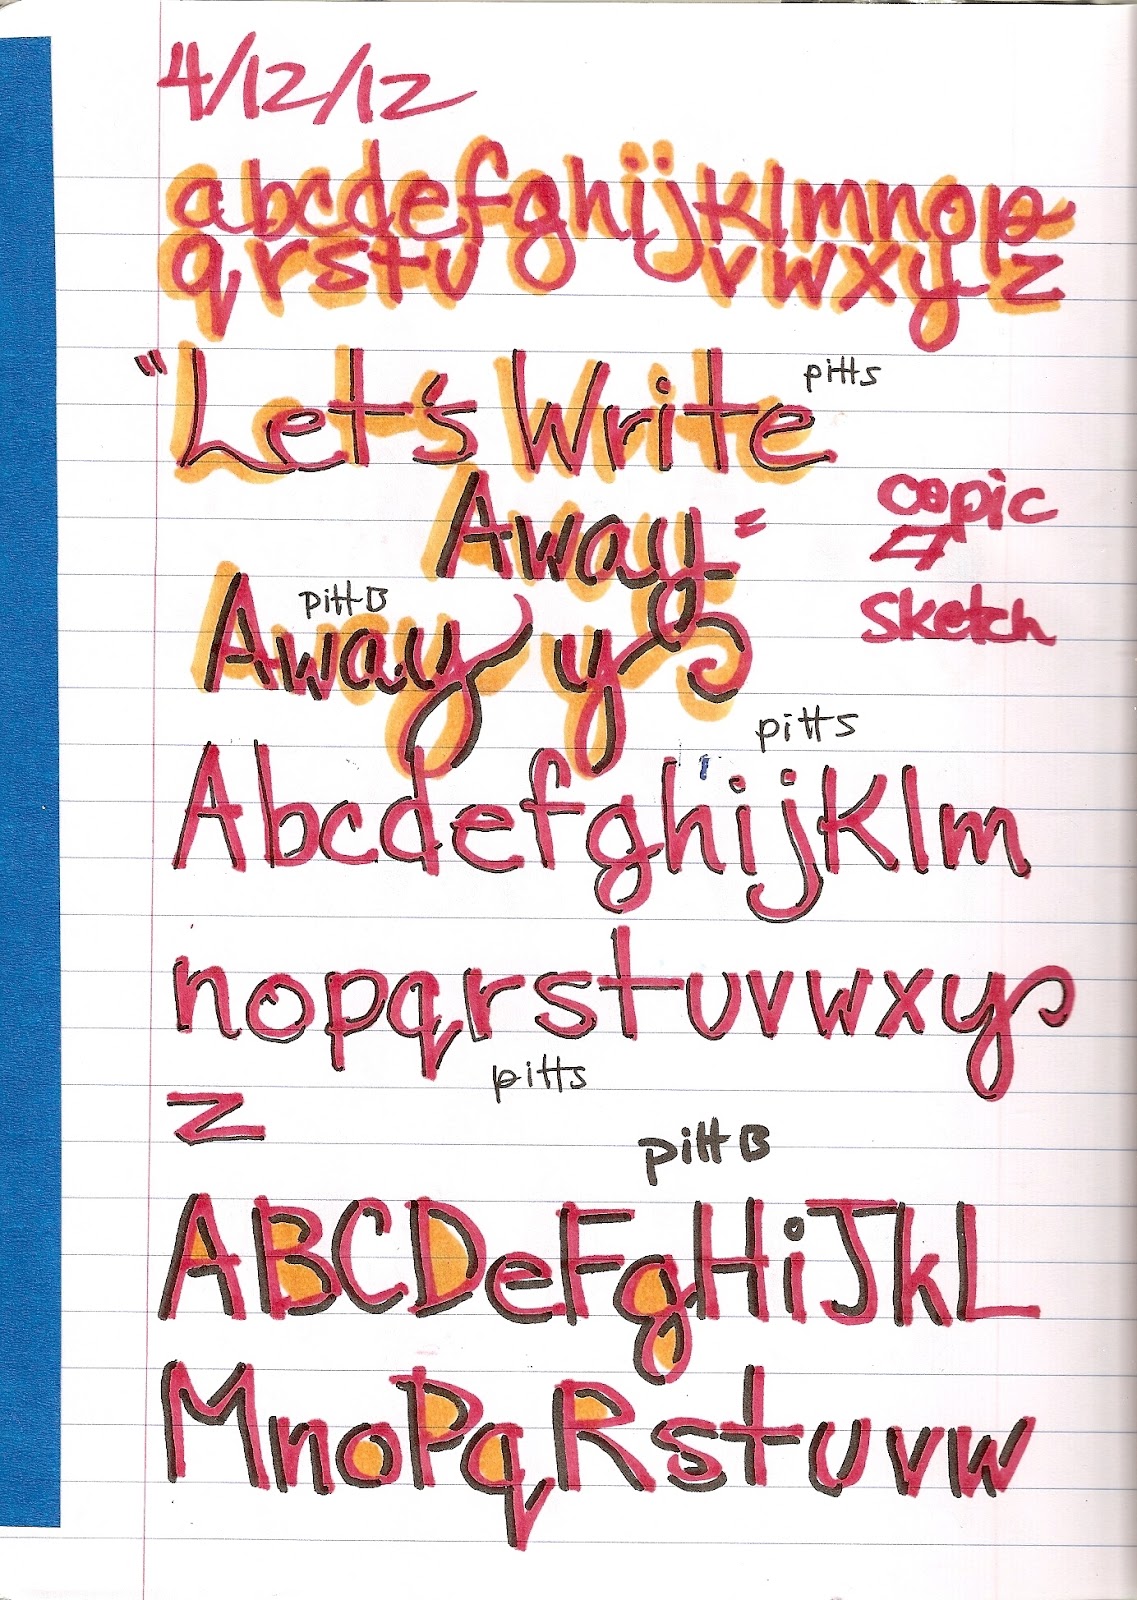 4/12/12
abcdefghijklmnop
qrstu vwxyz
"Let's Write pitts
Away"
copic
Sketch
pitt B
Away y s
pitts
AbcdefghijKlm
nopqrstuvwxy
pitts
z
pitt B
ABCDeFgHiJkL
MnoPqRstuvw